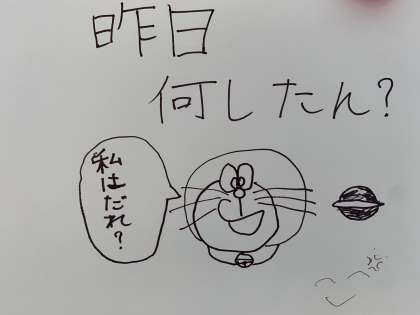 昨日
何したん?
私はだれ?